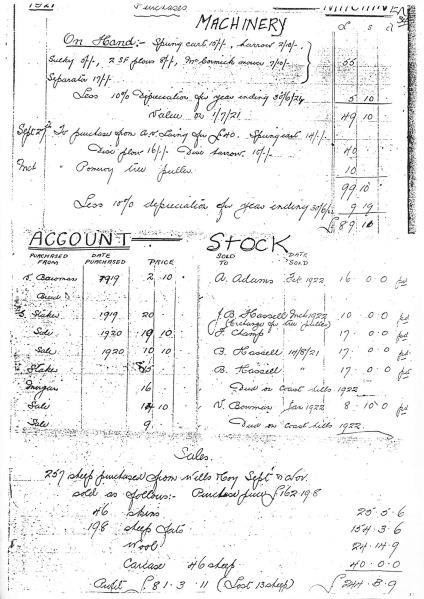 1921 Purchases
MACHINERY
£ s d
On Hand:- Spring cart 15/-, harrow 2/10/-
Sulky 5/-, 2 SF plows 8/-, McCormick mower 7/10/-
55
Separator 17/-
Less 10% Depreciation for year ending 30/6/21
5 10
Value on 1/7/21.
49 10
Sept 27th To purchase from for £40. Spring cart 14/-
Disc plow 16/- Disc harrow 10/-
40
" Pomeroy tree puller
10
99 10
Less 10% depreciation for year ending 30/6/
9 19
£ 89 10
ACCOUNT STOCK
PURCHASED FROM DATE PURCHASED PRICE
SOLD TO DATE SOLD
Bowman 1919 2 10
A. Adams Feb 1922 16 0 0 pd
S. Slakes 1919 20
J B Hassell 1922 10 0 0 pd
(Exchange for tree puller)
Sale 1920 19 10
J. Champ " 17 0 0 pd
Sale 1920 10 10
B. Hassell 10/8/21 17 0 0 pd
Slakes
B. Hassell " 17 0 0 pd
Morgan 16
Died on coast hills 1922
Sale 14 10
V. Bowman Jan 1922 8 10 0 pd
Sale 9
Died on coast hills 1922
Sales.
257 sheep purchased from Wells Sept & Nov.
sold as follows:- Purchase price £162.19.8
46 skins 25.5.6
198 sheep 154.3.6
Wool 24.14.9
Carcase 46 sheep 40.0.0
Profit £81.3.11 (Lost 13 sheep) £244.8.9